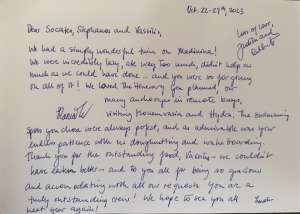 Oct. 22-29th, 2023
Dear Socrates, Stephanos and Vassilis,
We had a simply wonderful time on Madinina!
We were incredibly lazy, ate way too much, didn't help as
much as we could have done - and you were so forgiving
on all of it! We loved the itinerary you planned, on
many anchorages in remote bays,
visiting Monemvasia and Hydra. The swimming
spots you chose were always perfect, and as admirable was your
endless patience with us doughnutting and wakeboarding.
Thank you for the outstanding food, Vassilis - we couldn't
have eaten better - and to you all for being so gracious
and accomodating with all our requests. You are a
truly outstanding crew! We hope to see you all
next year again!
Lots of love,
Judith and